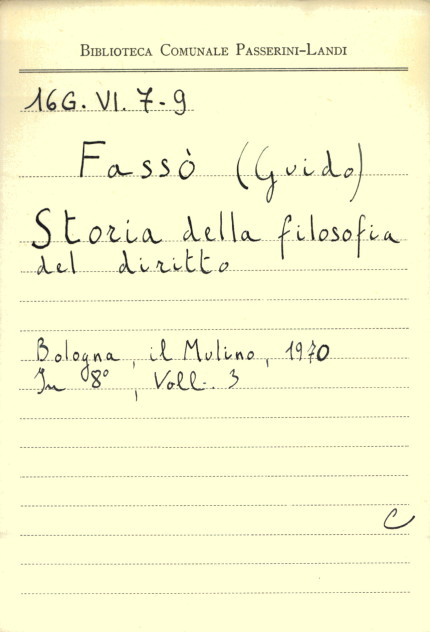 BIBLIOTECA COMUNALE PASSERINI-LANDI
16G. VI. 7-9
Fassò (Guido)
Storia della filosofia
del diritto
Bologna, il Mulino, 1970
In 8°, Voll. 3
C